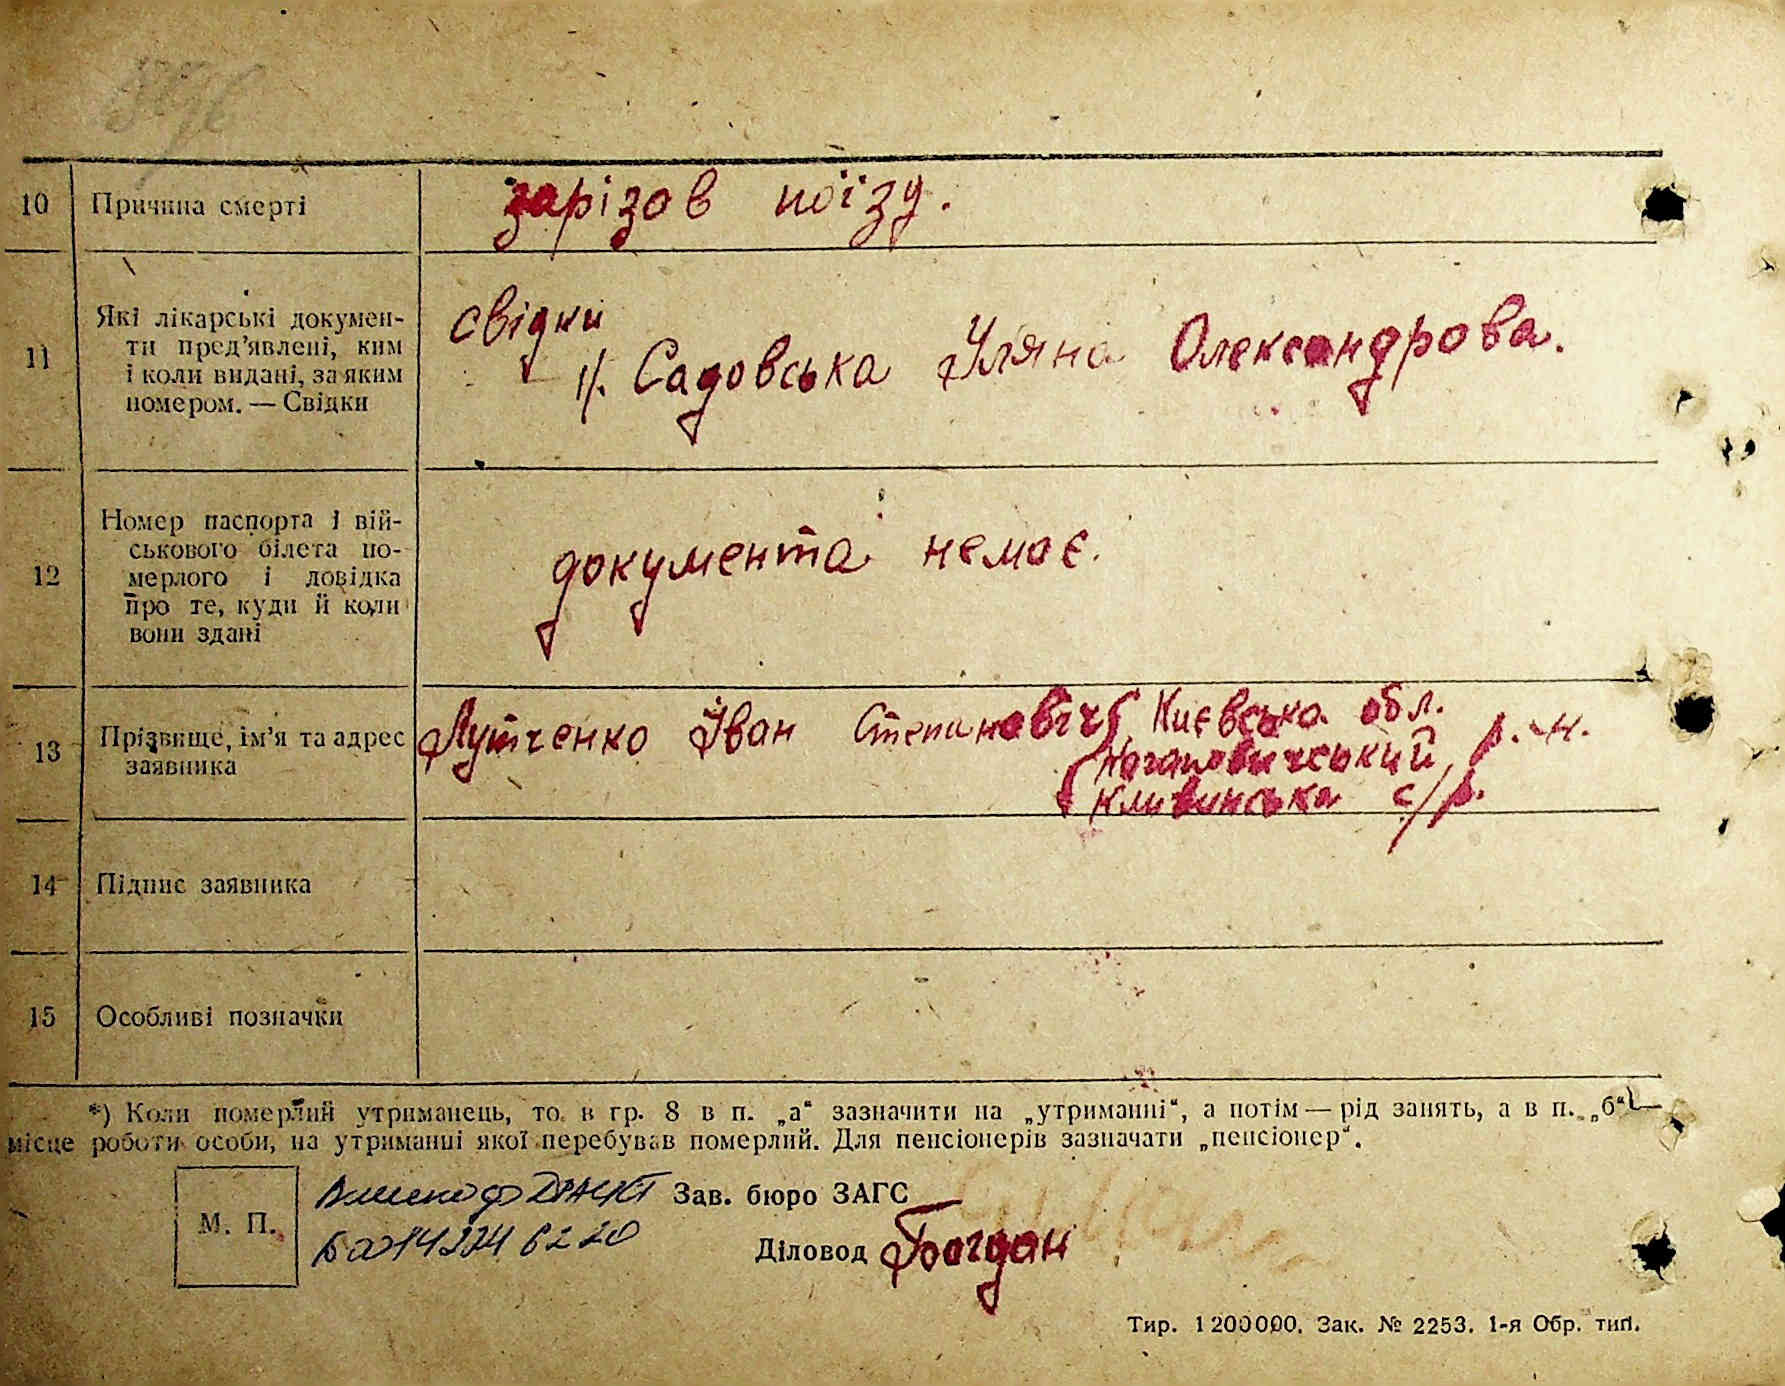 10 Причина смерті зарізов поїзд.
11 Які лікарські докумен-
ти пред'явлені, ким
і коли видані, за яким
номером. — Свідки
свідки
1/. Садовська Уляна Олександрова.
12 Номер паспорта і вій-
ськового білета по-
мерлого і довідка
про те, куди й коли
вони здані
документа немає.
13 Прізвище, ім'я та адрес
заявника
Лутченко Іван Степановіч Києвська обл.
р.-н.
с/р.
14 Підпис заявника
15 Особливі позначки
*) Коли померлий утриманець, то в гр. 8 в п. „а“ зазначити на „утриманні“, а потім — рід занять, а в п. „б“ —
місце роботи особи, на утриманні якої перебував померлий. Для пенсіонерів зазначати „пенсіонер“.
М. П.
Зав. бюро ЗАГС
Діловод Богдан
Тир. 1200000. Зак. № 2253. 1-я Обр. тип.